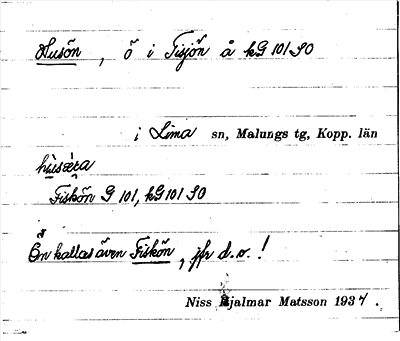 Husön , ö i Tisjön å kG 101 SO
i Lima sn, Malungs tg, Kopp. län
hùsæ̀ra
Fiskön G 101, kG 101 SO
Ön kallas även Fiskön, jfr d.o. !
Niss Hjalmar Matsson 1937 .